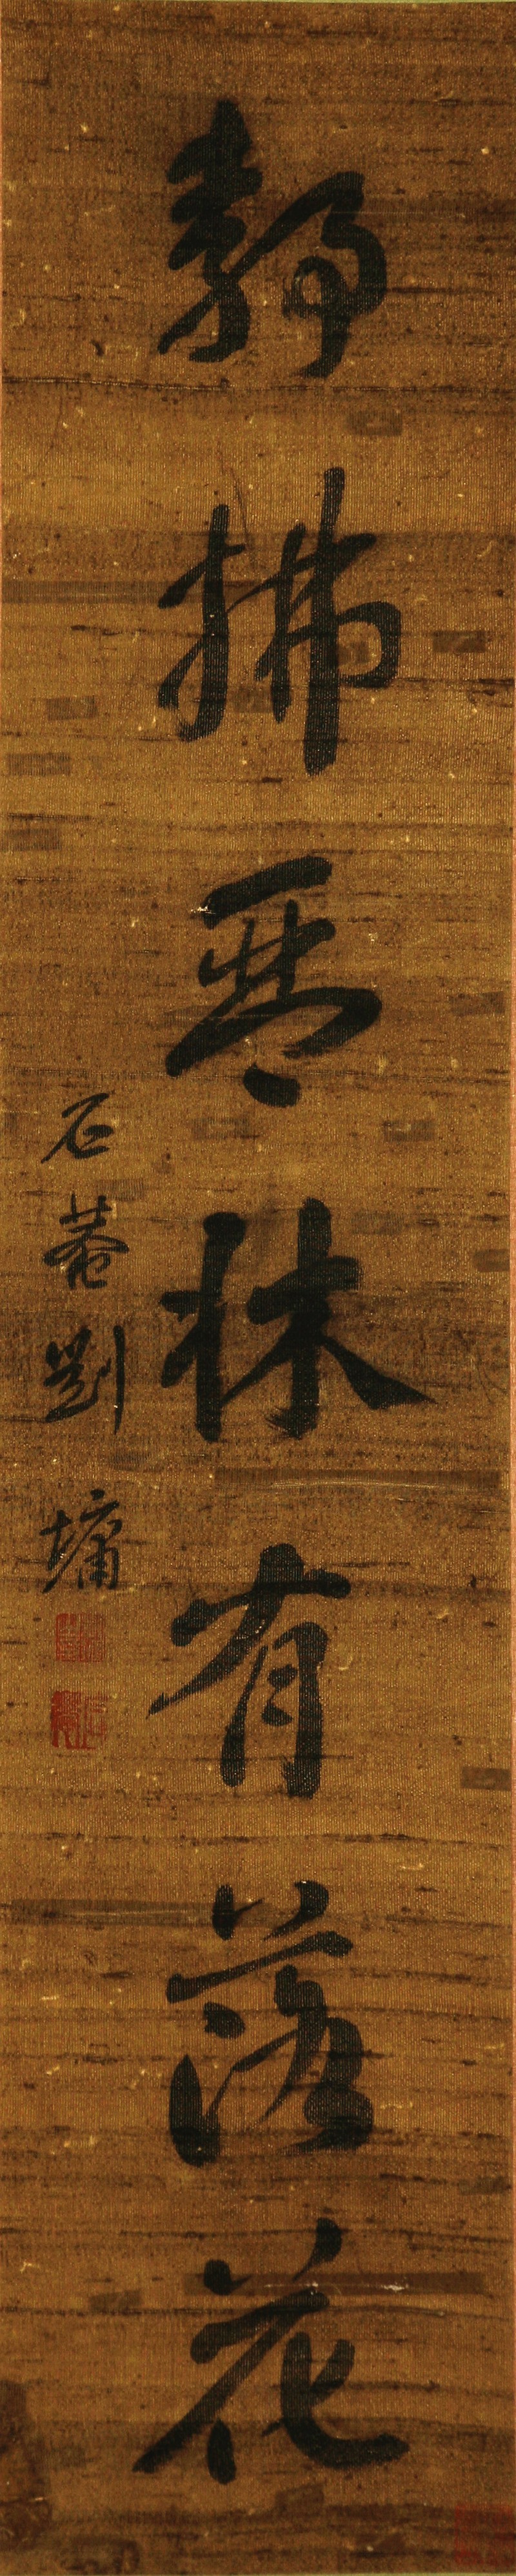 静拂琴牀有落花
石菴劉墉